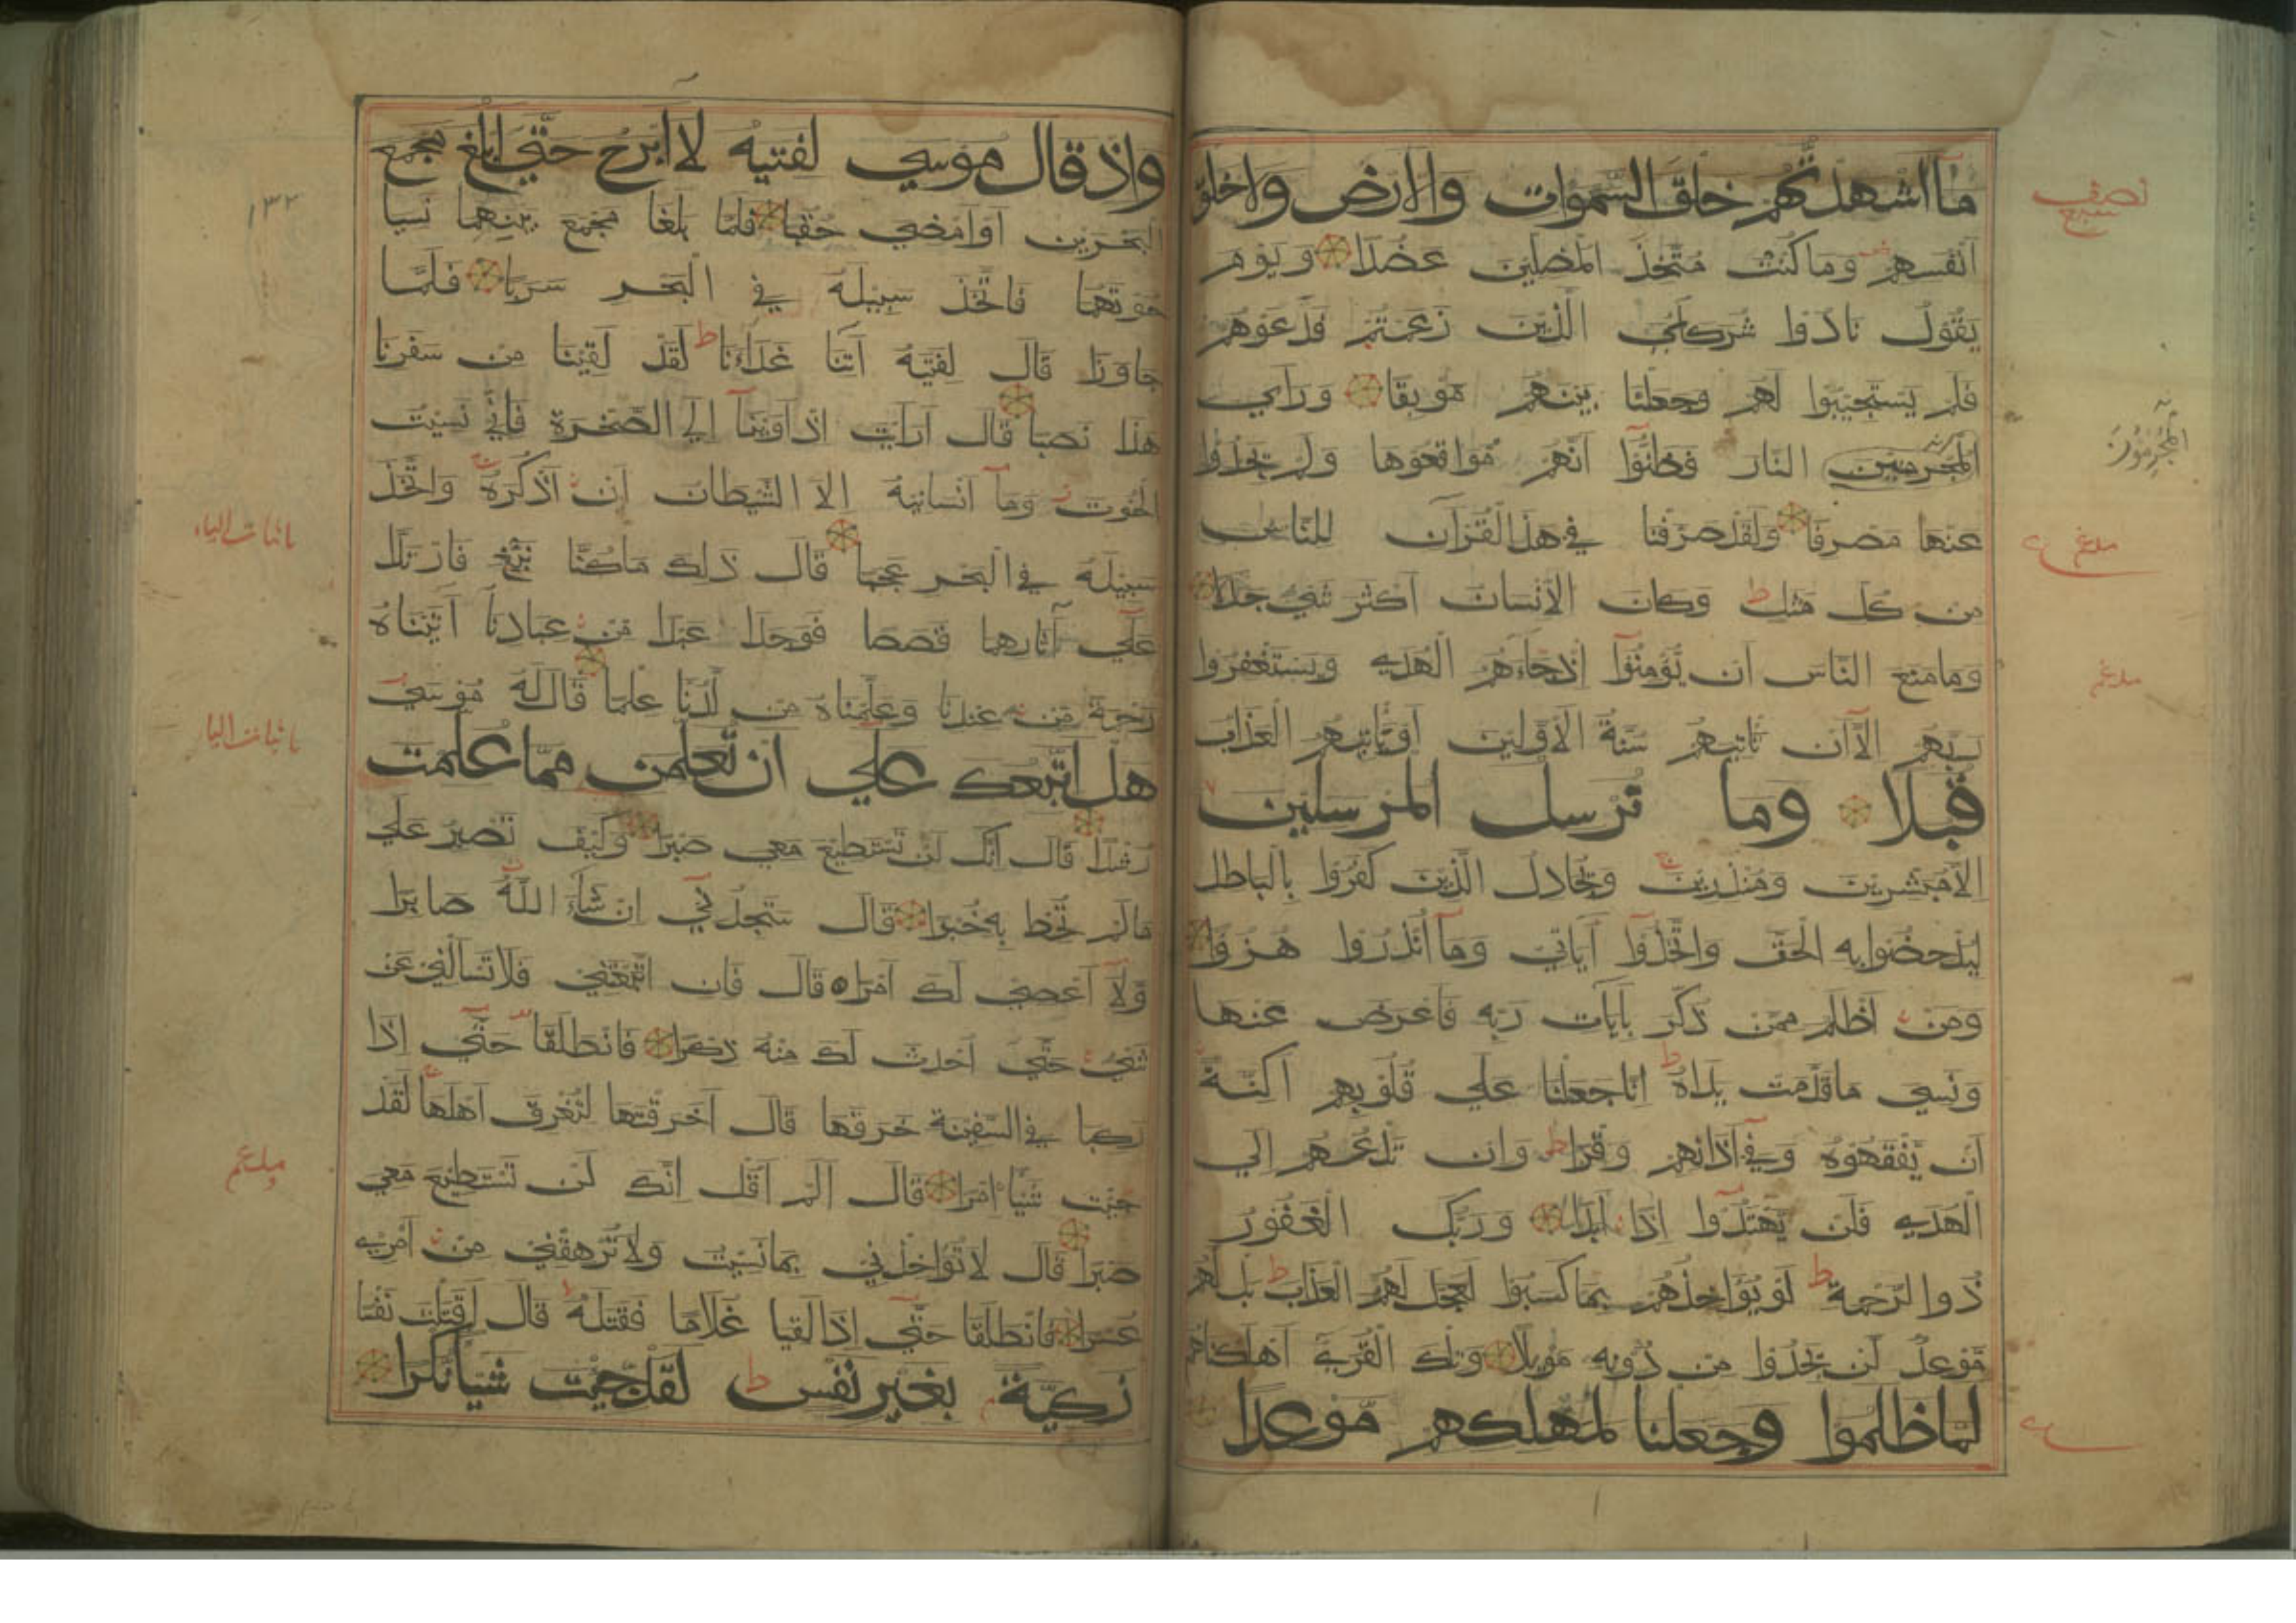 ما اشهدتهم خلق السموات والارض ولا خلق
نصف سبع
انفسهم وما كنت متخذ المضلين عضدا ويوم
يقول نادوا شركائي الذين زعمتم فدعوهم
فلم يستجيبوا لهم وجعلنا بينهم موبقا وراي
المجرمين النار فظنوا انهم مواقعوها ولم يجدوا
المجرمون
عنها مصرفا ولقد صرفنا في هذا القرآن للناس
مدغم
من كل مثل ط وكان الانسان اكثر شيء جدلا
وما منع الناس ان يؤمنوا اذ جاءهم الهدى ويستغفروا
مدغم
ربهم الا ان تاتيهم سنة الاولين او ياتيهم العذاب
قبلا وما نرسل المرسلين
الا مبشرين ومنذرين ويجادل الذين كفروا بالباطل
ليدحضوا به الحق واتخذوا آياتي وما انذروا هزوا
ومن اظلم ممن ذكر بآيات ربه فاعرض عنها
ونسي ما قدمت يداه ط انا جعلنا علي قلوبهم اكنة
ان يفقهوه وفي آذانهم وقرا ط وان تدعهم الي
الهدى فلن يهتدوا اذا ابدا وربك الغفور
ذو الرحمة ط لو يؤاخذهم بما كسبوا لعجل لهم العذاب ط بل لهم
موعد لن يجدوا من دونه موئلا وتلك القرى اهلكناهم
لما ظلموا وجعلنا لمهلكهم موعدا
واذ قال موسي لفتيه لا ابرح حتي ابلغ مجمع
١٣٢
البحرين او امضي حقبا فلما بلغا مجمع بينهما نسيا
حوتهما فاتخذ سبيله في البحر سربا فلما
جاوزا قال لفتيه آتنا غداءنا ط لقد لقينا من سفرنا
هذا نصبا قال ارايت اذ اوينا الي الصخرة فاني نسيت
الحوت وما انسانيه الا الشيطان ان اذكره واتخذ
سبيله في البحر عجبا قال ذلك ما كنا نبغ فارتدا
باثبات الياء
علي آثارهما قصصا فوجدا عبدا من عبادنا آتيناه
رحمة من عندنا وعلمناه من لدنا علما قال له موسي
هل اتبعك علي ان تعلمن مما علمت
باثبات اليا
رشدا قال انك لن تستطيع معي صبرا وكيف تصبر علي
ما لم تحط به خبرا قال ستجدني ان شاء الله صابرا
ولا اعصي لك امرا قال فان اتبعتني فلا تسالني عن
شيء حتي احدث لك منه ذكرا فانطلقا حتي اذا
ركبا في السفينة خرقها قال اخرقتها لتغرق اهلها لقد
جئت شيئا امرا قال الم اقل انك لن تستطيع معي
مدغم
صبرا قال لا تؤاخذني بما نسيت ولا ترهقني من امري
عسرا فانطلقا حتي اذا لقيا غلاما فقتله قال اقتلت نفسا
زكية بغير نفس ط لقد جئت شيئا نكرا